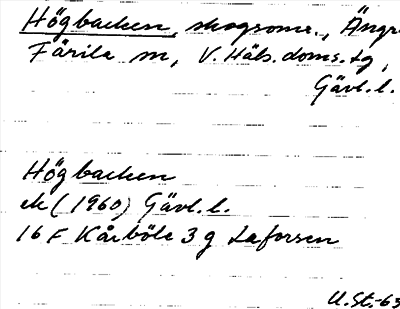 Högbacken, skogsomr., Ängra
Färila sn, V. Häls. doms.tg,
Gävl.l.
Högbacken
ek (1960) Gävl.l.
16 F Kårböle 3 g Laforsen
U.St.-63